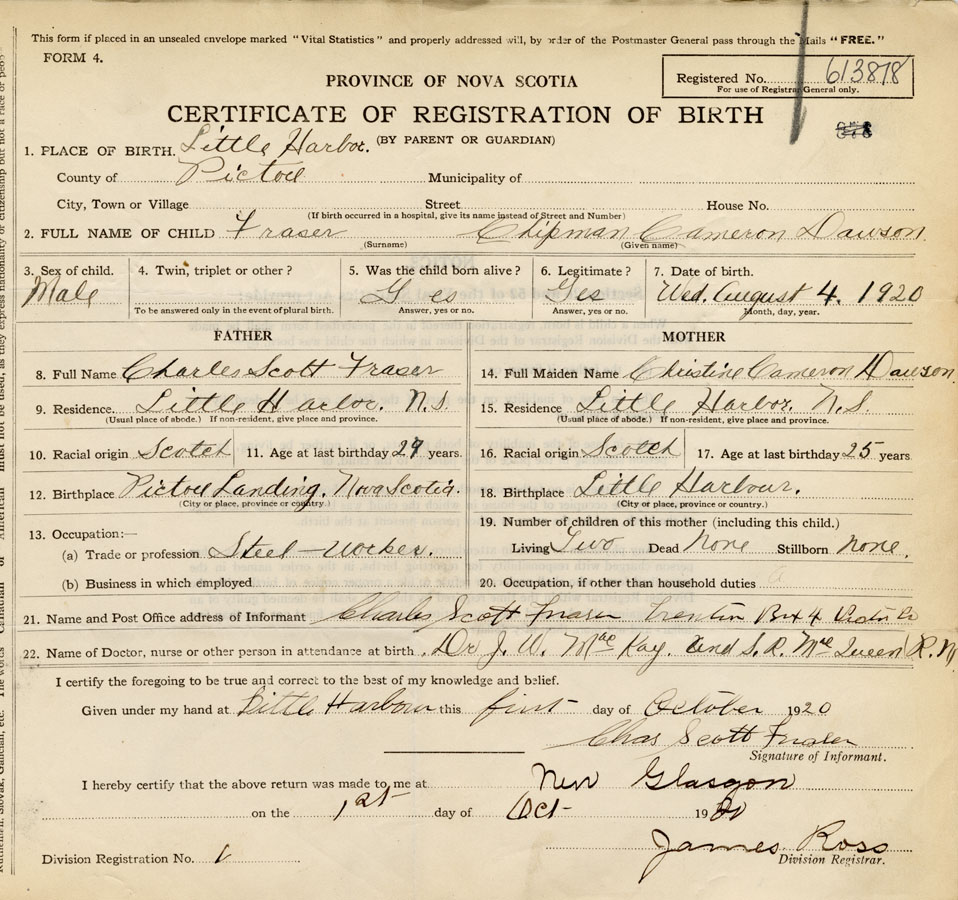 This form if placed in an unsealed envelope marked "Vital Statistics" and properly addressed will, by order of the Postmaster General pass through the Mails "FREE."
FORM 4.
Registered No. 613878
For use of Registrar General only.
PROVINCE OF NOVA SCOTIA
CERTIFICATE OF REGISTRATION OF BIRTH
(BY PARENT OR GUARDIAN)
1. PLACE OF BIRTH. Little Harbor.
County of Pictou Municipality of
City, Town or Village Street House No.
(If birth occurred in a hospital, give its name instead of Street and Number)
2. FULL NAME OF CHILD Fraser Chipman Cameron Dawson
(Surname) (Given name)
3. Sex of child. 4. Twin, triplet or other? 5. Was the child born alive? 6. Legitimate? 7. Date of birth.
Male Yes Yes Wed. August 4. 1920
To be answered only in the event of plural birth. Answer, yes or no. Answer, yes or no. Month, day, year.
FATHER MOTHER
8. Full Name Charles Scott Fraser 14. Full Maiden Name Christine Cameron Dawson.
9. Residence. Little Harbor. N.S. 15. Residence Little Harbor. N.S.
(Usual place of abode.) If non-resident, give place and province. (Usual place of abode.) If non-resident, give place and province.
10. Racial origin Scotch 11. Age at last birthday 29 years. 16. Racial origin Scotch 17. Age at last birthday 25 years
12. Birthplace Pictou Landing. Nova Scotia. 18. Birthplace Little Harbour.
(City or place, province or country.) (City or place, province or country.)
13. Occupation:— 19. Number of children of this mother (including this child.)
(a) Trade or profession Steel-worker. Living Two Dead None Stillborn none.
(b) Business in which employed 20. Occupation, if other than household duties
21. Name and Post Office address of Informant Charles Scott Fraser Trenton Box 4 Pictou Co
22. Name of Doctor, nurse or other person in attendance at birth. Dr J. W. MacKay. and S. R. McQueen R.N
I certify the foregoing to be true and correct to the best of my knowledge and belief.
Given under my hand at Little Harbour this first day of October 1920
Chas Scott Fraser
Signature of Informant.
I hereby certify that the above return was made to me at New Glasgow
on the 1st day of Oct 1920
James Ross
Division Registration No. 1 Division Registrar.